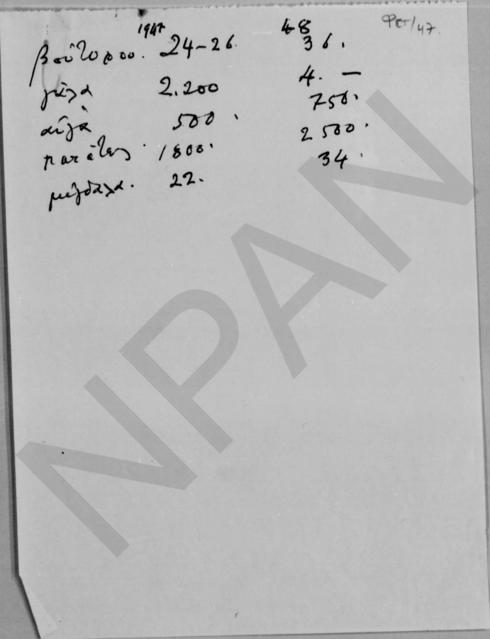 Φεβ/47.
1947 48
βούτυρον. 24-26 36.
γάλα 2.200 4. —
αὐγὰ 500. 750.
πατάτες. 1800. 2500.
μύγδαλα. 22. 34.
NPAN